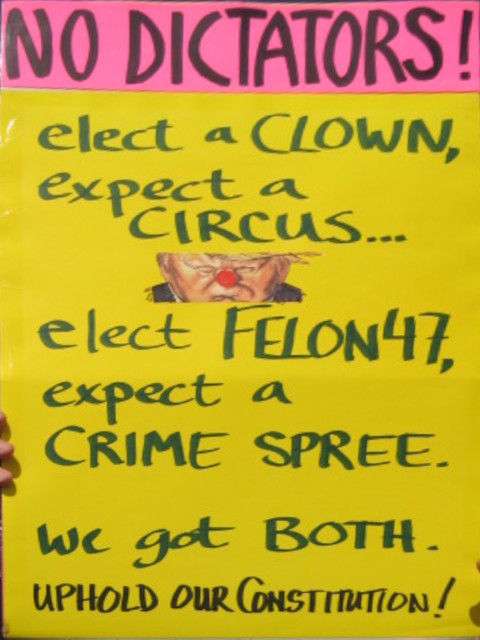 NO DICTATORS!
elect a CLOWN,
expect a
CIRCUS...
elect FELON'47,
expect a
CRIME SPREE.
We got BOTH.
UPHOLD OUR CONSTITUTION!